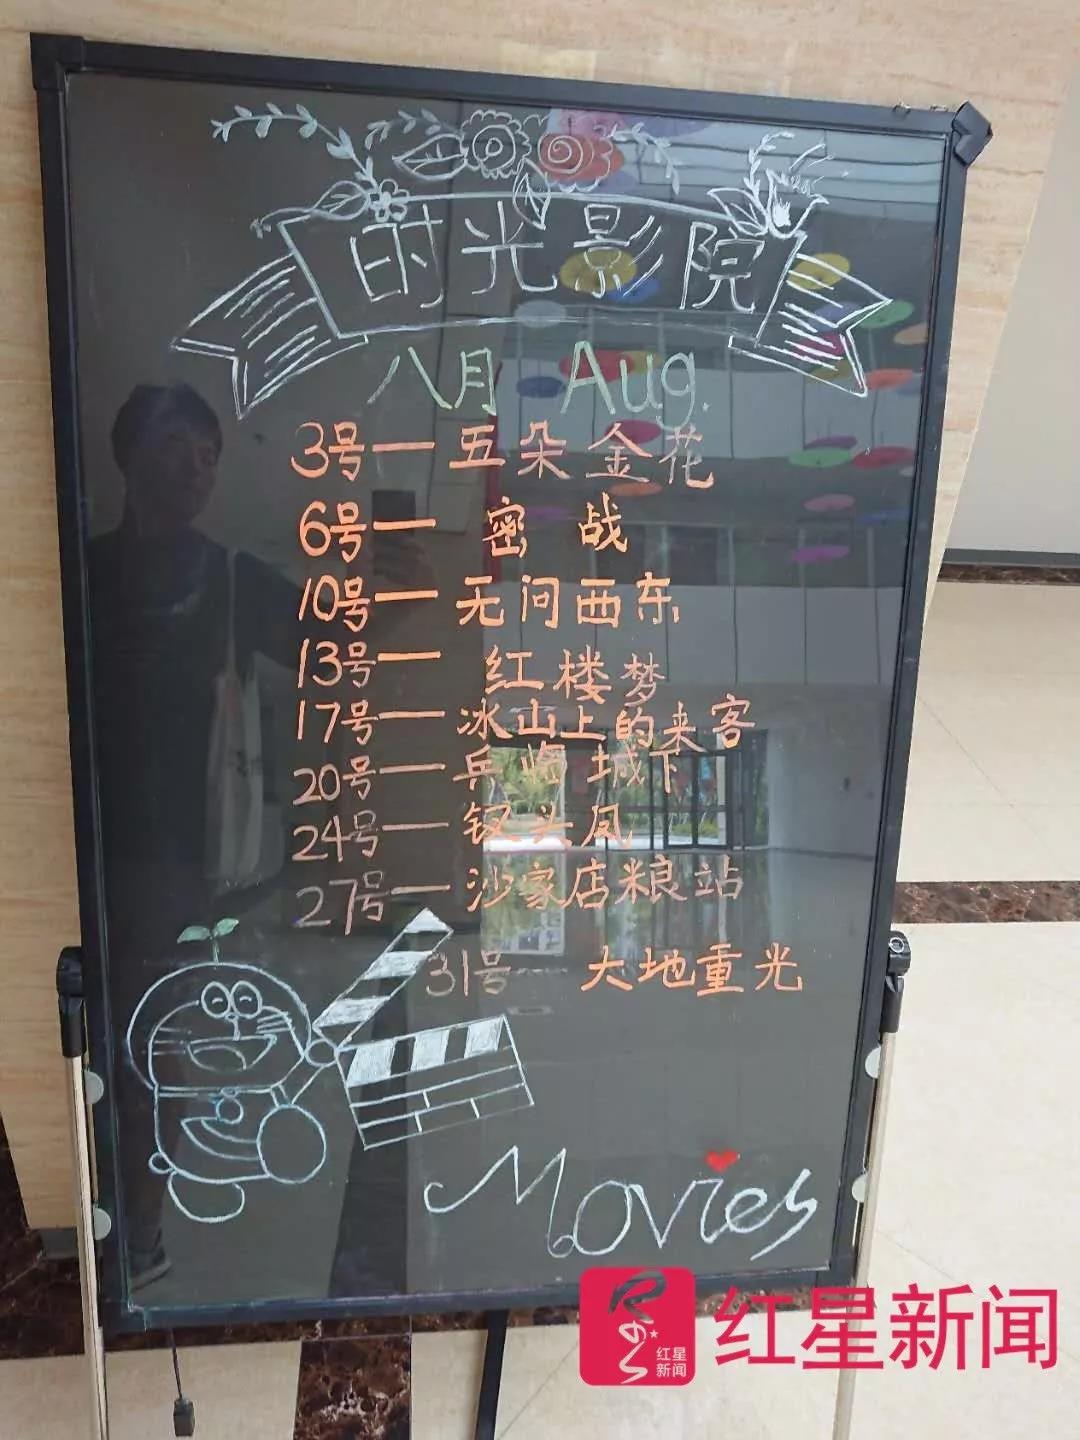 时光影院
八月 Aug.
3号—五朵金花
6号—密战
10号—无问西东
13号—红楼梦
17号—冰山上的来客
20号—兵临城下
24号—钗头凤
27号—沙家店粮站
31号— 大地重光
Movies
红星新闻
红星新闻